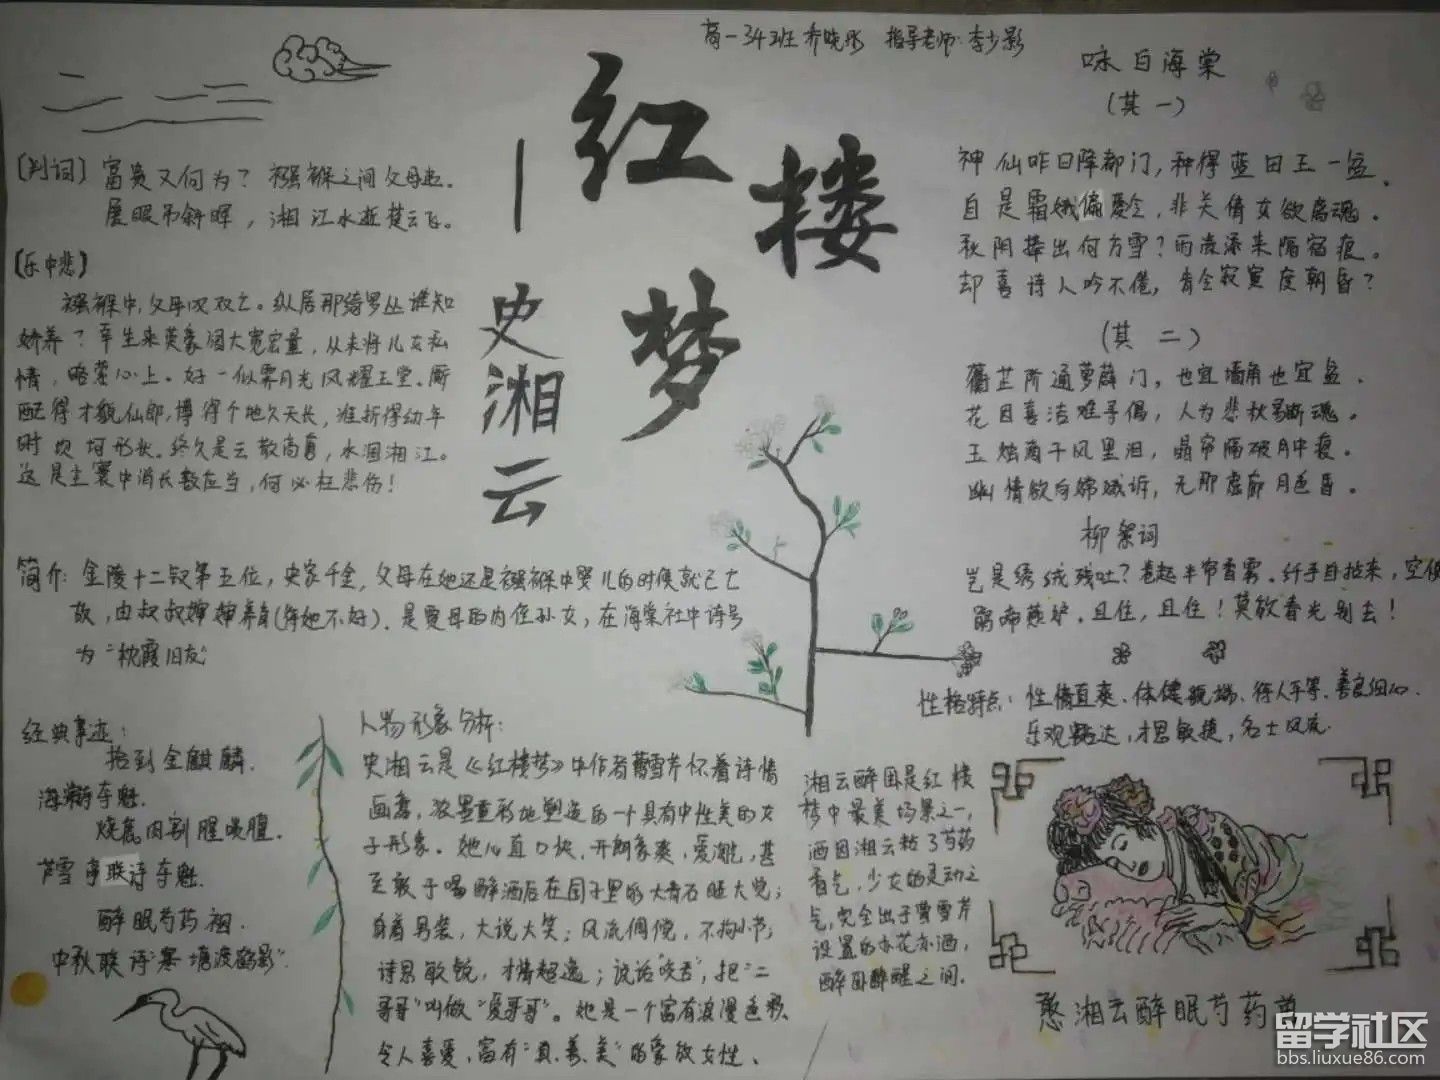 高一34班 乔晓彤 指导老师:李少影
红楼梦
—史湘云
[判词] 富贵又何为?襁褓之间父母违。
展眼吊斜晖,湘江水逝楚云飞。
[乐中悲]
襁褓中,父母叹双亡。纵居那绮罗丛谁知
娇养?幸生来英豪阔大宽宏量,从未将儿女私
情,略萦心上。好一似霁月光风耀玉堂。厮
配得才貌仙郎,博得个地久天长,准折得幼年
时坎坷形状。终久是云散高唐,水涸湘江。
这是尘寰中消长数应当,何必枉悲伤!
简介:金陵十二钗第五位,史家千金,父母在她还是襁褓中婴儿的时候就已亡
故,由叔叔婶婶养育(待她不好)。是贾母的内侄孙女,在海棠社中诗号
为“枕霞旧友”
经典事迹:
拾到金麒麟.
海棠诗夺魁.
烧鹿肉割腥啖膻.
芦雪亭联诗夺魁.
醉眠芍药裀.
中秋联诗“寒塘渡鹤影”.
人物形象分析:
史湘云是《红楼梦》中作者曹雪芹怀着诗情
画意,浓墨重彩地塑造的一个具有中性美的女
子形象。她心直口快,开朗豪爽,爱淘气,甚
至敢于喝醉酒后在园子里的大青石睡大觉;
身着男装,大说大笑;风流倜傥,不拘小节;
诗思敏锐,才情超逸;说话“咬舌”,把“二
哥哥”叫做“爱哥哥”。她是一个富有浪漫色彩
令人喜爱,富有“真、善、美”的豪放女性、
咏白海棠
(其一)
神仙昨日降都门,种得蓝田玉一盆.
自是霜娥偏爱冷,非关倩女欲离魂。
秋阴捧出何方雪?雨渍添来隔宿痕。
却喜诗人吟不倦,肯令寂寞度朝昏?
(其二)
蘅芷阶通萝薜门,也宜墙角也宜盆.
花因喜洁难寻偶,人为悲秋易断魂。
玉烛滴干风里泪,晶帘隔破月中痕。
幽情欲向嫦娥诉,无那虚廊月色昏。
柳絮词
岂是绣绒残吐?卷起半帘香雾。纤手自拈来,空使
鹃啼燕妒。且住,且住!莫放春光别去!
性格特点:性情直爽、体健貌端、待人平等、善良细心.
乐观豁达,才思敏捷,名士风流
湘云醉困是红楼
梦中最美场景之一,
酒因湘云粘了芍药
香气,少女的灵动之
气,完全出于曹雪芹
设置的亦花亦酒,
醉困醉醒之间.
憨湘云醉眠芍药茵
留学社区
bbs.liuxue86.com